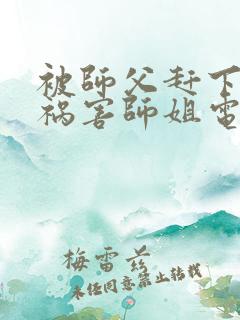 被師父赶下
祸害師姐電
梅雷茲
未任同意禁止转载